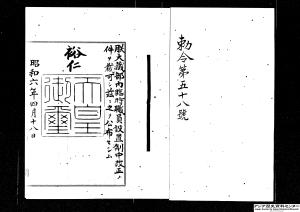 勅令第五十八號
朕大藏部內臨時職員設置制中改正ノ
件ヲ裁可シ茲ニ之ヲ公布セシム
裕仁
天皇御璽
昭和六年四月十八日